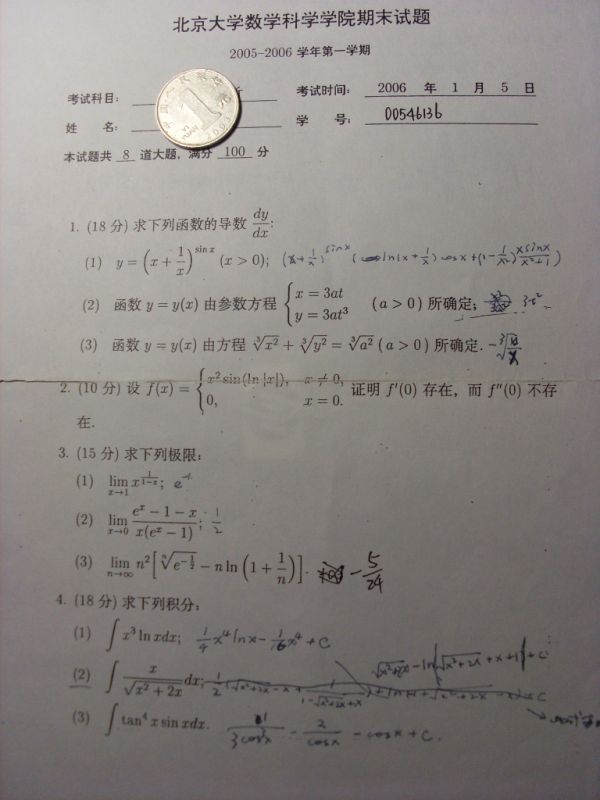 北京大学数学科学学院期末试题
2005-2006 学年第一学期
考试科目: 考试时间: 2006 年 1 月 5 日
姓 名: 学 号: 00546136
本试题共 8 道大题, 满分 100 分
1. (18 分) 求下列函数的导数 dy/dx:
(1) y = (x + 1/x)^{sin x} (x > 0); (x + 1/x)^{sin x} ( ln(x + 1/x) cos x + (1 - 1/x²) x sin x/(x²+1) )
(2) 函数 y = y(x) 由参数方程 { x = 3at, y = 3at³ (a > 0) 所确定; 3t²
(3) 函数 y = y(x) 由方程 ∛x² + ∛y² = ∛a² (a > 0) 所确定. -∛(y/x)
2. (10 分) 设 f(x) = { x² sin(ln |x|), x ≠ 0, 0, x = 0. 证明 f′(0) 存在, 而 f″(0) 不存
在.
3. (15 分) 求下列极限:
(1) lim_{x→1} x^{1/(1-x)}; e^{-1}
(2) lim_{x→0} (e^x - 1 - x)/(x(e^x - 1)); 1/2
(3) lim_{n→∞} n²[ⁿ√(e^{-1/2}) - n ln(1 + 1/n)]. -5/24
4. (18 分) 求下列积分:
(1) ∫ x³ ln x dx; 1/4 x⁴ ln x - 1/16 x⁴ + C
√(x²+2x) - ln|√(x²+2x) + x + 1| + C
(2) ∫ x/√(x² + 2x) dx;
(3) ∫ tan⁴ x sin x dx. 1/(3cos³x) - 2/cos x - cos x + C.